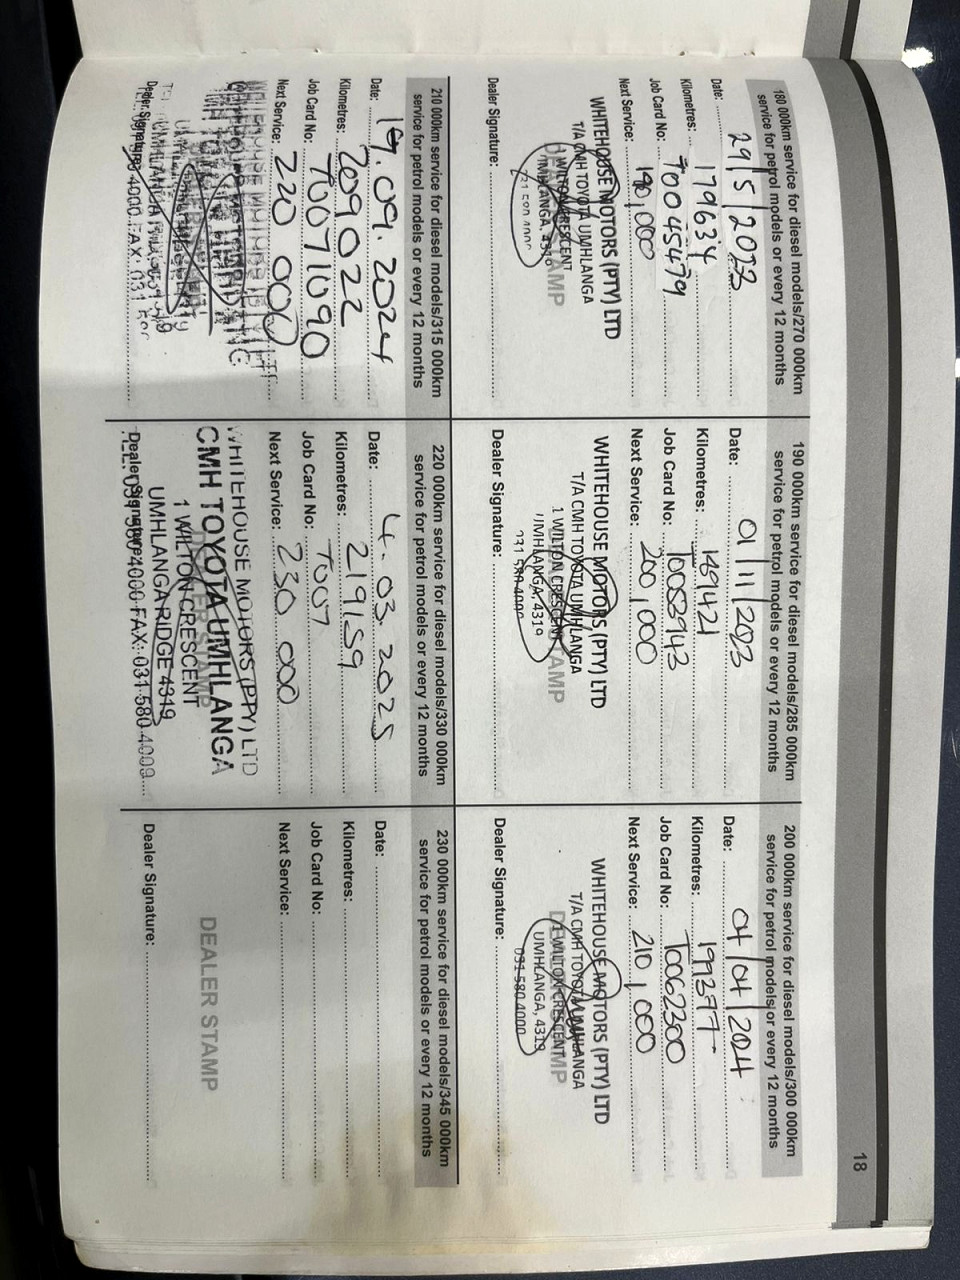 18
180 000km service for diesel models/270 000km
service for petrol models or every 12 months
Date: 29/5/2023
Kilometres: 179634
Job Card No: T0045479
Next Service: 190,000
WHITEHOUSE MOTORS (PTY) LTD
T/A CMH TOYOTA UMHLANGA
1 WILTON CRESCENT
UMHLANGA, 4319
031 580 4000
Dealer Signature:
190 000km service for diesel models/285 000km
service for petrol models or every 12 months
Date: 01/11/2023
Kilometres: 189421
Job Card No: T0053943
Next Service: 200,000
WHITEHOUSE MOTORS (PTY) LTD
T/A CMH TOYOTA UMHLANGA
1 WILTON CRESCENT
UMHLANGA, 4319
031 580 4000
Dealer Signature:
200 000km service for diesel models/300 000km
service for petrol models or every 12 months
Date: 04/04/2024
Kilometres: 199397
Job Card No: T0062300
Next Service: 210,000
WHITEHOUSE MOTORS (PTY) LTD
T/A CMH TOYOTA UMHLANGA
1 WILTON CRESCENT
UMHLANGA, 4319
031 580 4000
Dealer Signature:
210 000km service for diesel models/315 000km
service for petrol models or every 12 months
Date: 19.09.2024
Kilometres: 209022
Job Card No: T0071090
Next Service: 220 000
Dealer Signature:
220 000km service for diesel models/330 000km
service for petrol models or every 12 months
Date: 4.03.2025
Kilometres: 219159
Job Card No: T007
Next Service: 230 000
WHITEHOUSE MOTORS (PTY) LTD
CMH TOYOTA UMHLANGA
1 WILTON CRESCENT
UMHLANGA RIDGE 4319
TEL: 031 580 4000 FAX: 031 580 4009
Dealer Signature:
230 000km service for diesel models/345 000km
service for petrol models or every 12 months
Date:
Kilometres:
Job Card No:
Next Service:
DEALER STAMP
Dealer Signature: